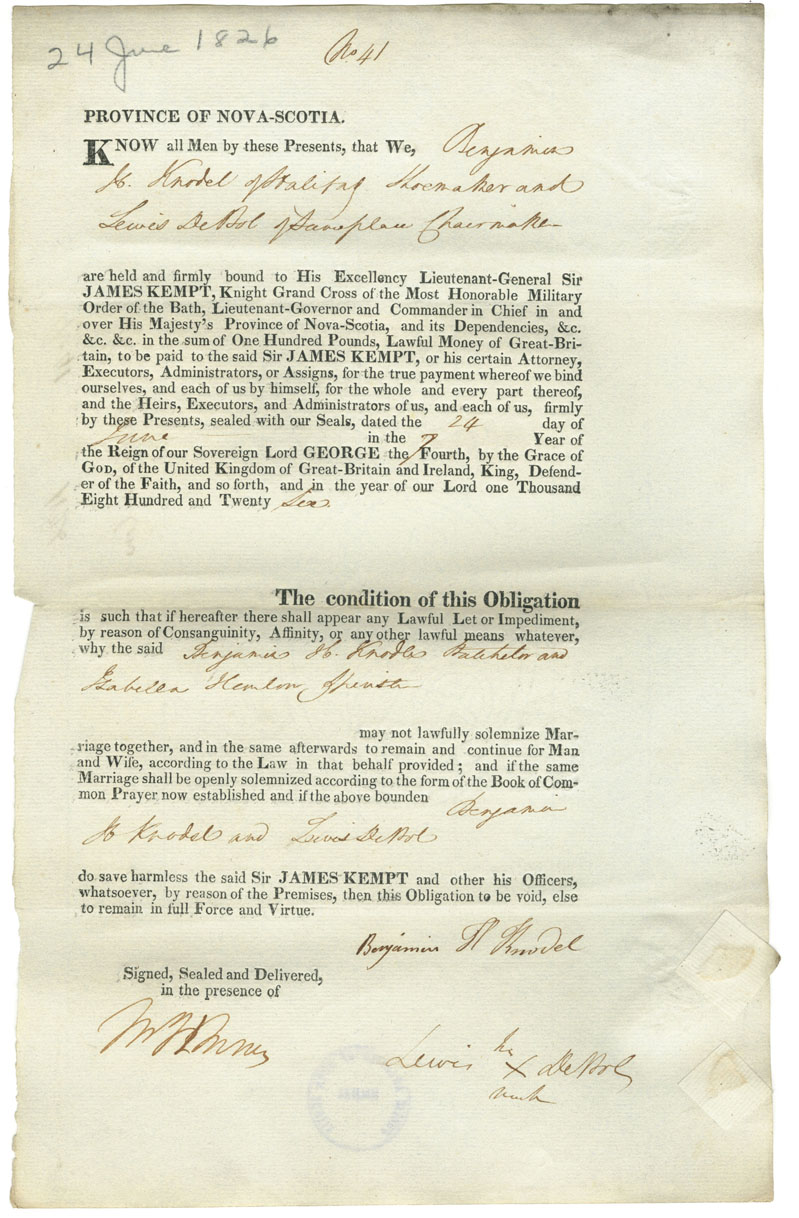 24 June 1826
No 41
PROVINCE OF NOVA-SCOTIA.
KNOW all Men by these Presents, that We, Benjamin
H. Knodel of Halifax Shoemaker and
Lewis DeBol of Chairmaker
are held and firmly bound to His Excellency Lieutenant-General Sir
JAMES KEMPT, Knight Grand Cross of the Most Honorable Military
Order of the Bath, Lieutenant-Governor and Commander in Chief in and
over His Majesty's Province of Nova-Scotia, and its Dependencies, &c.
&c. &c. in the sum of One Hundred Pounds, Lawful Money of Great-Bri-
tain, to be paid to the said Sir JAMES KEMPT, or his certain Attorney,
Executors, Administrators, or Assigns, for the true payment whereof we bind
ourselves, and each of us by himself, for the whole and every part thereof,
and the Heirs, Executors, and Administrators of us, and each of us, firmly
by these Presents, sealed with our Seals, dated the 24 day of
June in the 7 Year of
the Reign of our Sovereign Lord GEORGE the Fourth, by the Grace of
GOD, of the United Kingdom of Great-Britain and Ireland, King, Defend-
er of the Faith, and so forth, and in the year of our Lord one Thousand
Eight Hundred and Twenty Six
The condition of this Obligation
is such that if hereafter there shall appear any Lawful Let or Impediment,
by reason of Consanguinity, Affinity, or any other lawful means whatever,
why the said Benjamin H. Knodle Batchelor and
Isabella Spinster
may not lawfully solemnize Mar-
riage together, and in the same afterwards to remain and continue for Man
and Wife, according to the Law in that behalf provided; and if the same
Marriage shall be openly solemnized according to the form of the Book of Com-
mon Prayer now established and if the above bounden Benjamin
H Knodel and Lewis DeBol
do save harmless the said Sir JAMES KEMPT and other his Officers,
whatsoever, by reason of the Premises, then this Obligation to be void, else
to remain in full Force and Virtue.
Benjamin H Knodel
Signed, Sealed and Delivered,
in the presence of
Lewis his X DeBol
mark